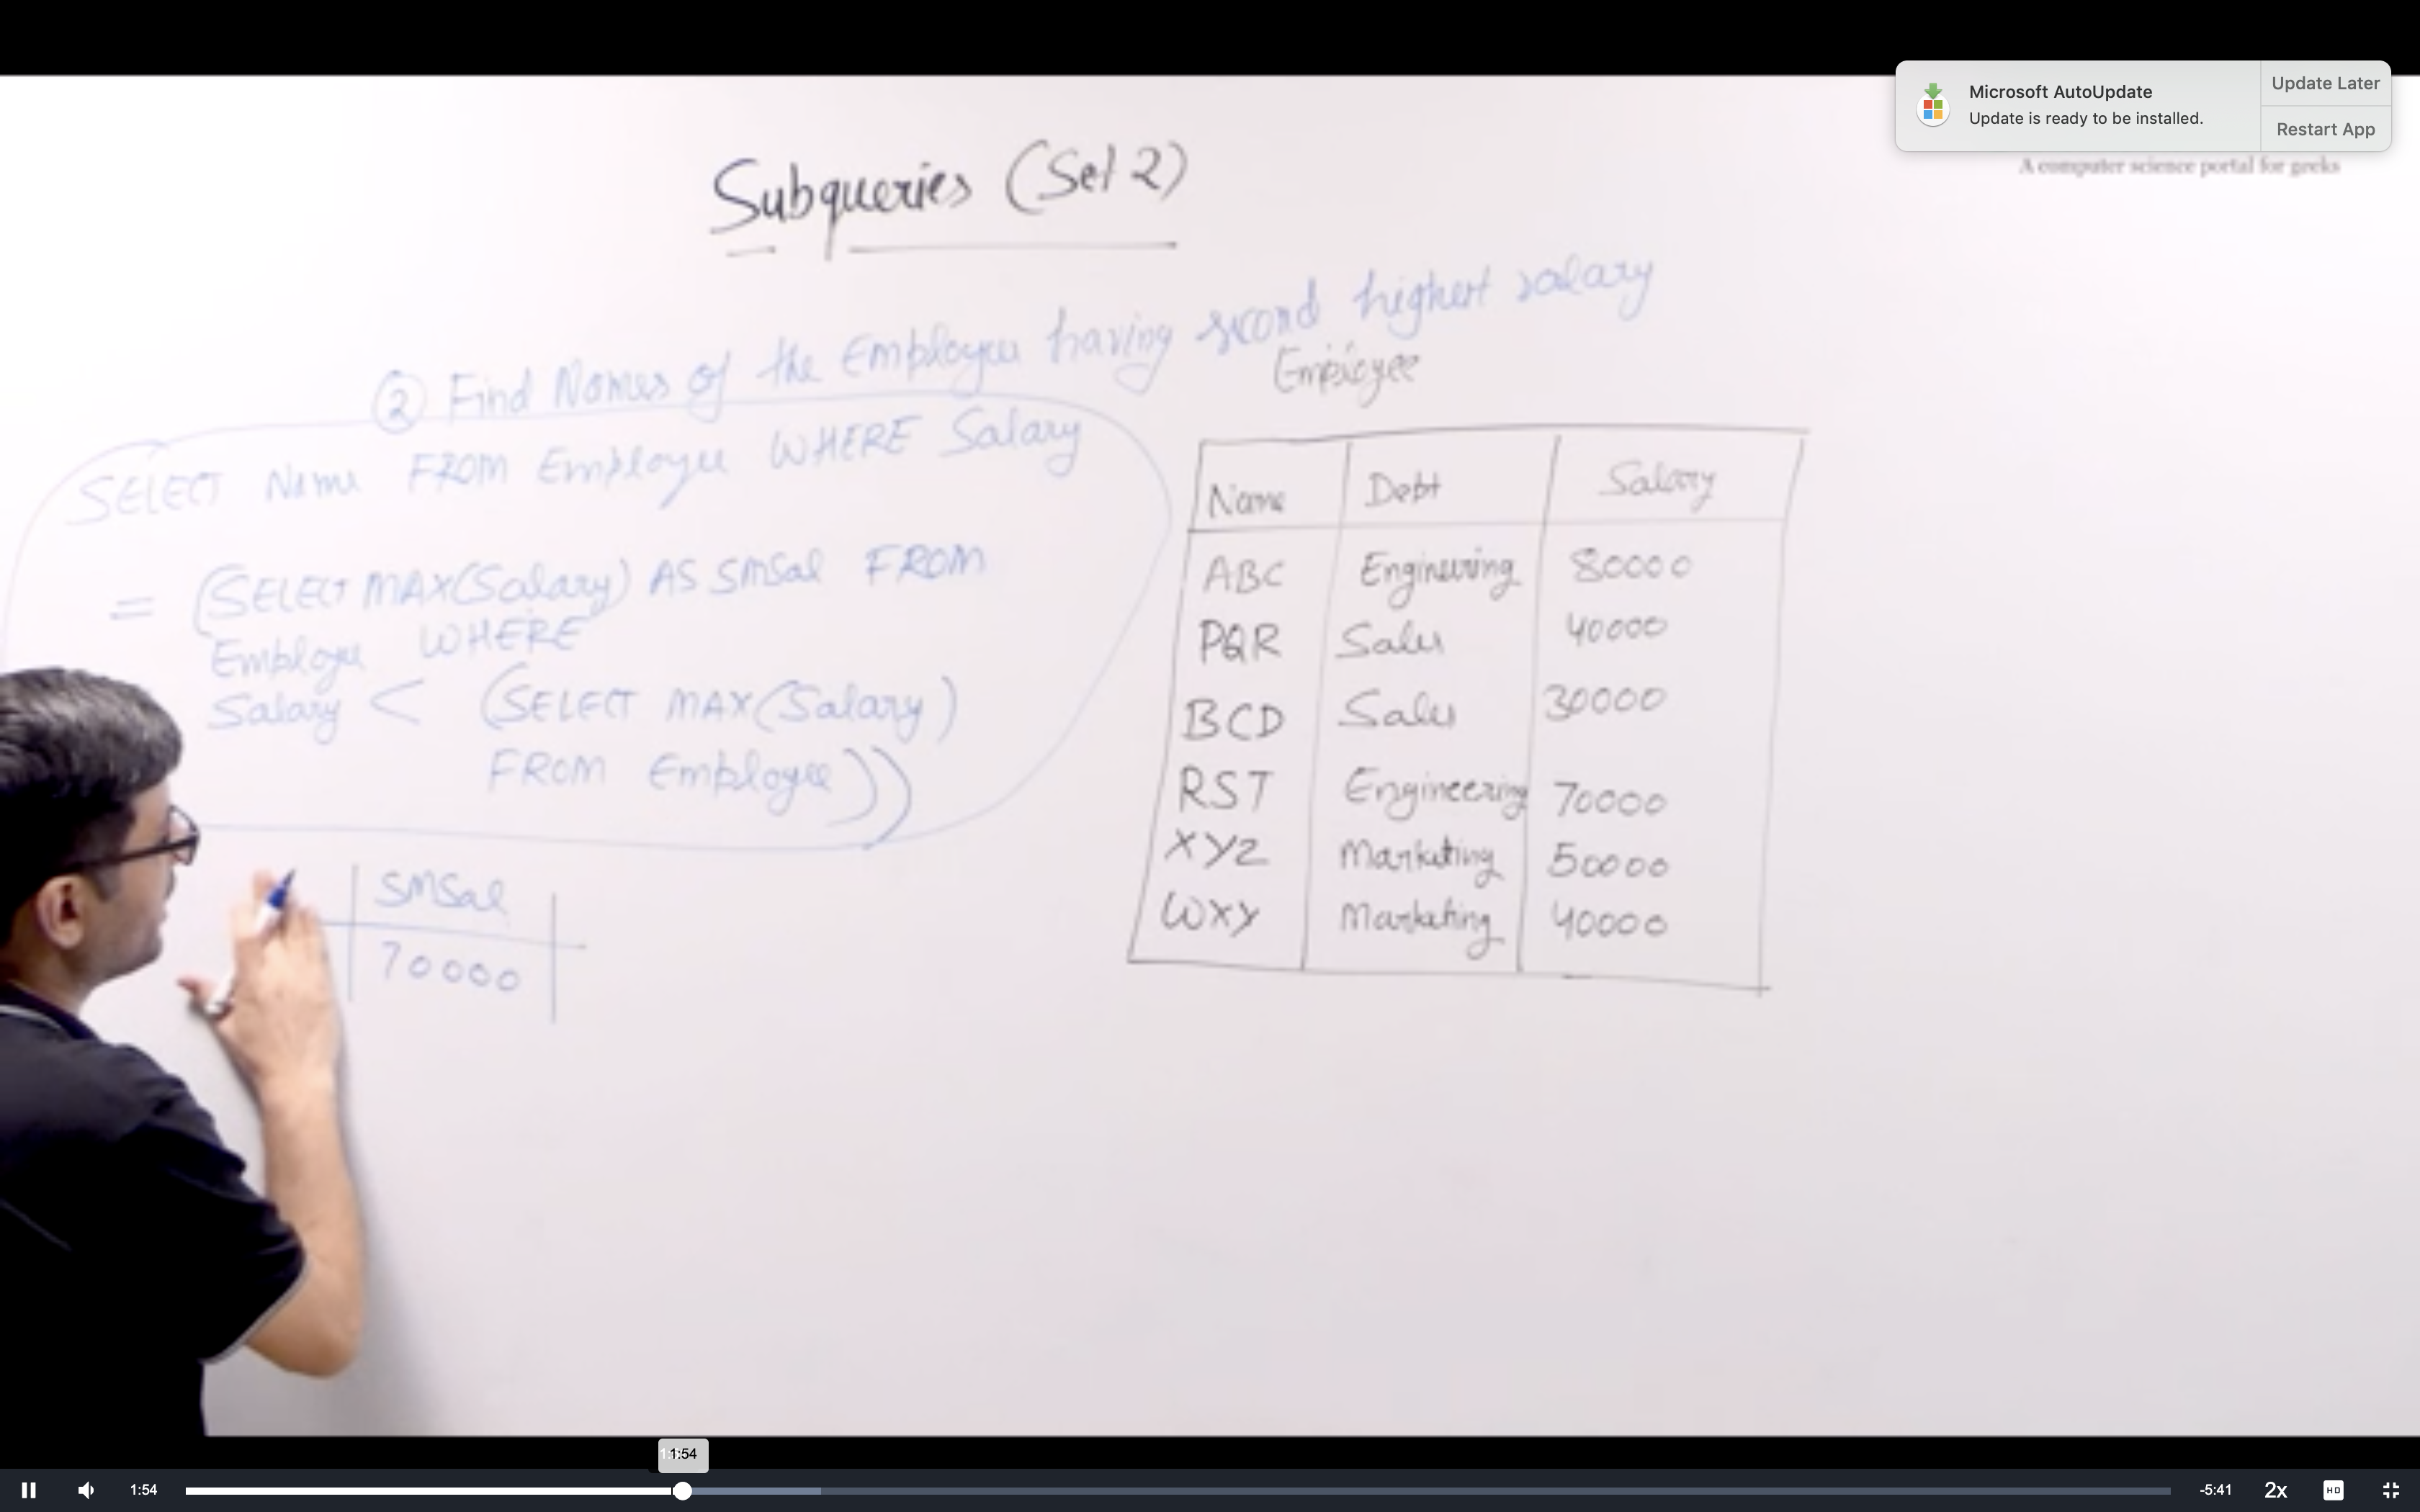 Microsoft AutoUpdate
Update is ready to be installed.
Update Later
Restart App
A computer science portal for geeks
Subqueries (Set 2)
② Find Names of the Employee having second highest salary
SELECT Name FROM Employee WHERE Salary
= (SELECT MAX(Salary) AS SMSal FROM
Employee WHERE
Salary < (SELECT MAX(Salary)
FROM Employee))
SMSal
70000
Employee
Name Debt Salary
ABC Engineering 80000
PQR Sales 40000
BCD Sales 30000
RST Engineering 70000
XYZ Marketing 50000
WXY Marketing 40000
1:54
1:54
-5:41
2x
HD